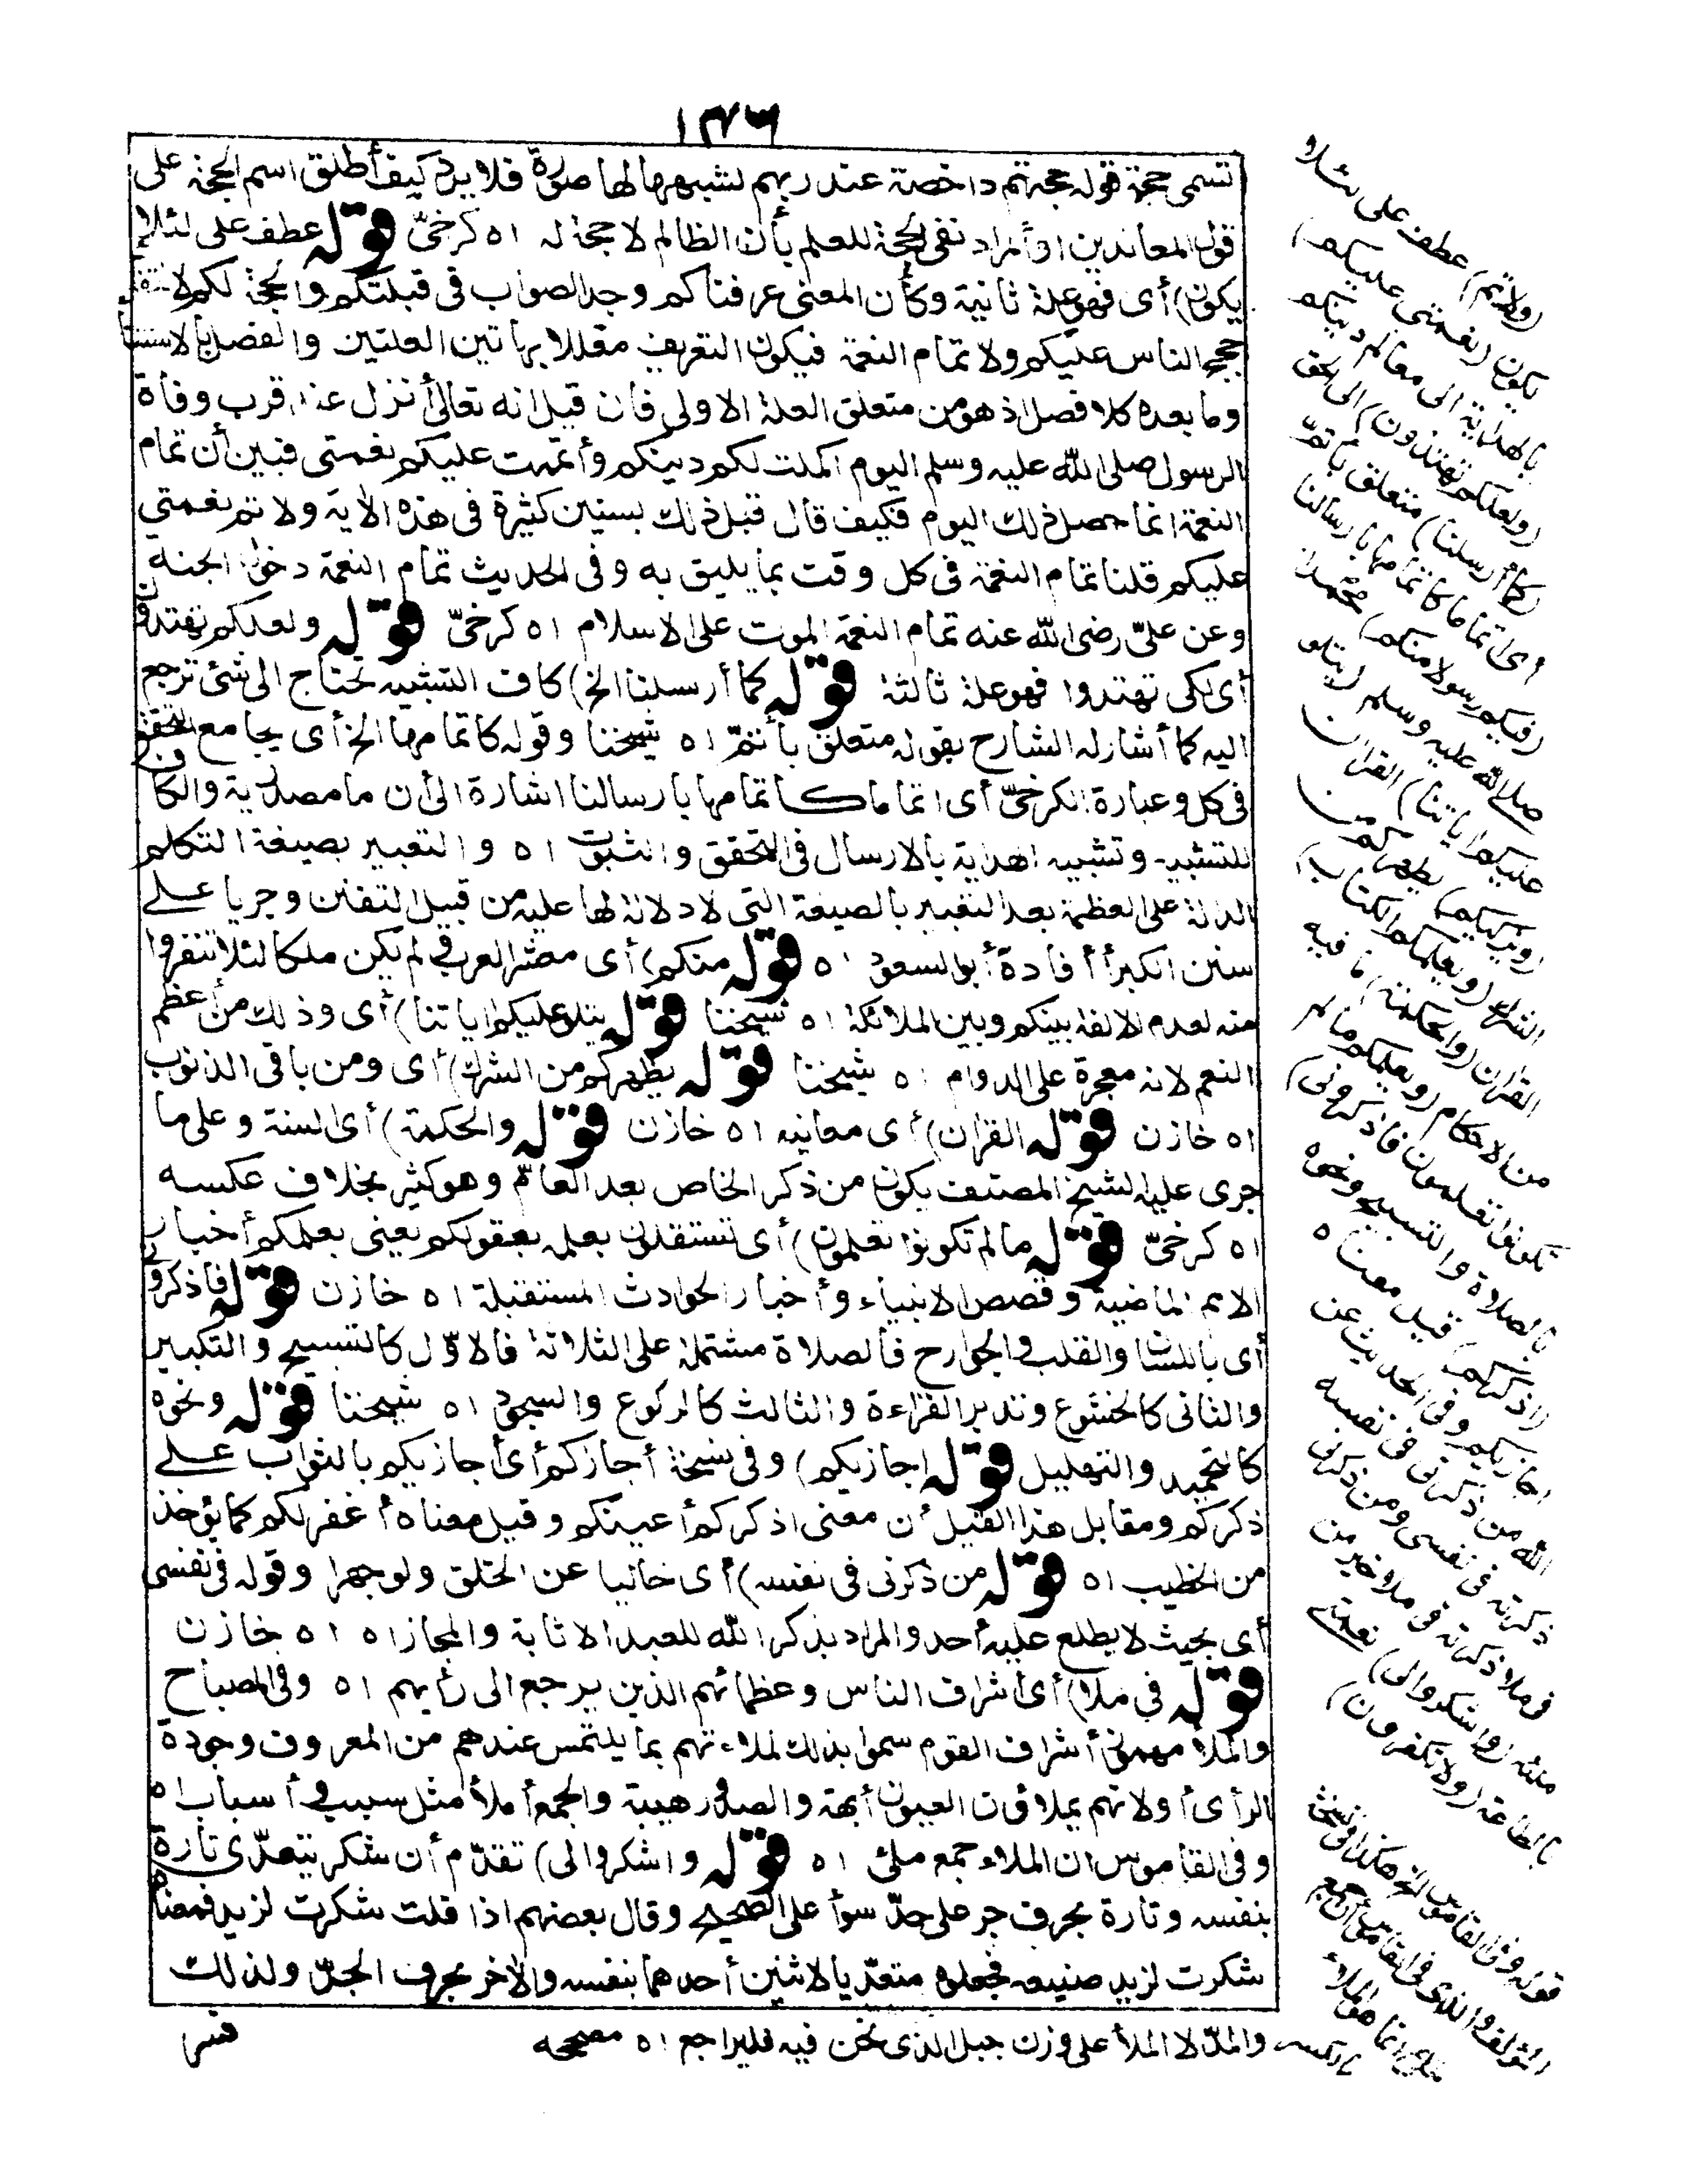 ١٣٦
تسمى حجة قوله حجتهم داحضة عند ربهم لشبهها لها صورة فلا يرد كيف أطلق اسم الحجة على
قول المعاندين أو المراد نفى الحجة للعلم بأن الظالم لا حجة له اه كرخىّ قوله عطف على لئلا
يكون) أى فهو علة ثانية وكأن المعنى عرفناكم وجه الصواب فى قبلتكم والحجة لكم لانتفاء
حجج الناس عليكم ولاتمام النعمة فيكون التعريف معللا بهاتين العلتين والفصل بالاستثناء
وما بعده كلا فصل اذ هو من متعلق العلة الاولى فان قيل انه تعالى أنزل عند قرب وفاة
الرسول صلى الله عليه وسلم اليوم اكملت لكم دينكم وأتممت عليكم نعمتى فبين أن تمام
النعمة انما حصل ذلك اليوم فكيف قال قبل ذلك بسنين كثيرة فى هذه الآية ولاتم نعمتي
عليكم قلنا تمام النعمة فى كل وقت بما يليق به وفى الحديث تمام النعمة دخول الجنة
وعن علىّ رضى الله عنه تمام النعمة الموت على الاسلام اه كرخىّ قوله ولعلكم تهتدون
أى لكى تهتدوا فهو علة ثالثة قوله كما أرسلنا الخ) كاف التشبيه تحتاج الى شئ ترجع
اليه كما أشار له الشارح بقوله متعلق بأتمّ اه شيخنا وقوله كاتمامها الخ أى بجامع التحقق
فى كل وعبارة الكرخىّ أى اتماما كاتمامها بارسالنا اشارة الى أن ما مصدرية والكاف
للتشبيه وتشبيه الهداية بالارسال فى التحقق والثبوت اه والتعبير بصيغة التكلم
الدالة على العظمة بعد التعبير بالصيغة التى لا دلالة لها عليه من قبيل التفنن وجريا على
سنن الكبرأ أفادة أبو السعود اه قوله منكم) أى معشر العرب فى لم يكن ملكا لئلا تنفروا
منه لعدم الالفة بينكم وبين الملائكة اه شيخنا قوله يتلو عليكم اياتنا) أى وذلك من أعظم
النعم لانه معجزة على الدوام اه شيخنا قوله يطهركم من الشرك) أى ومن باقى الذنوب
اه خازن قوله القران) أى معانيه اه خازن قوله والحكمة) أى السنة وعلى ما
جرى عليه الشيخ المصنف يكون من ذكر الخاص بعد العامّ وهو كثير بخلاف عكسه
اه كرخىّ قوله ما لم تكونوا تعلمون) أى تستقلون بعلمه بعقولكم يعنى يعلمكم أخبار
الامم الماضية وقصص الانبياء وأخبار الحوادث المستقبلة اه خازن قوله فاذكرونى
أى باللسان والقلب والجوارح فالصلاة مشتملة على الثلاثة فالاوّل كالتسبيح والتكبير
والثانى كالخشوع وتدبر القراءة والثالث كالركوع والسجود اه شيخنا قوله ونحوه
كالتحميد والتهليل قوله اجازيكم) وفى نسخة أجازكم أى أجازيكم بالثواب على
ذكركم ومقابل هذا القيل أن معنى اذكركم أعينكم وقيل معناه أغفر لكم كما يؤخذ
من الخطيب اه قوله من ذكرنى فى نفسه) أى خاليا عن الخلق ولو جهرا وقوله فى نفسى
أى بحيث لا يطلع عليه أحد والمراد بذكر الله للعبد الاثابة والمجازاه اه خازن
قوله في ملا) أى أشراف الناس وعظمائهم الذين يرجع الى رأيهم اه وفى المصباح
والملأ مهموز أشراف القوم سموا بذلك لملاءتهم بما يلتمس عندهم من المعروف وجودة
الرأى أو لانهم يملاؤن العيون أبهة والصدور هيبة والجمع أملأ مثل سبب وأسباب اه
وفى القاموس ان الملاء جمع ملئ اه قوله واشكروا لى) تقدّم أن شكر يتعدّى تارة
بنفسه وتارة بحرف جر على حدّ سوأ على الصحيح وقال بعضهم اذا قلت شكرت لزيد فمعناه
شكرت لزيد صنيعه فجعلوه متعدّيا لاثنين أحدهما بنفسه والآخر بحرف الجرّ ولذلك
فسر
(ولاتم) عطف على لئلا
يكون (نعمتى عليكم)
بالهداية الى معالم دينكم
(ولعلكم تهتدون) الى الحق
(كما أرسلنا) متعلق بأتمّ
أى اتماما كاتمامها بارسالنا
(فيكم رسولا منكم) محمدا
صلى الله عليه وسلم (يتلو
عليكم اياتنا) القران
(ويزكيكم) يطهركم من
الشرك (ويعلمكم الكتاب)
القران (والحكمة) ما فيه
من الاحكام (ويعلمكم ما لم
تكونوا تعلمون فاذكرونى)
بالصلاة والتسبيح ونحوه
(اذكركم) قيل معناه
اجازيكم وفى الحديث عن
الله من ذكرنى فى نفسه
ذكرته فى نفسى ومن ذكرنى
فى ملا ذكرته فى ملا خير من
ملئه (واشكروا لى) نعمتى
بالطاعة (ولا تكفرون)
قوله وفى القاموس الخ هكذا فى نسخ
المؤلف والذى فى القاموس أن جمع
ملئ انما هو الملاء
بالكسر والمدّ لا الملأ على وزن جبل الذى نحن فيه فليراجع اه مصححه